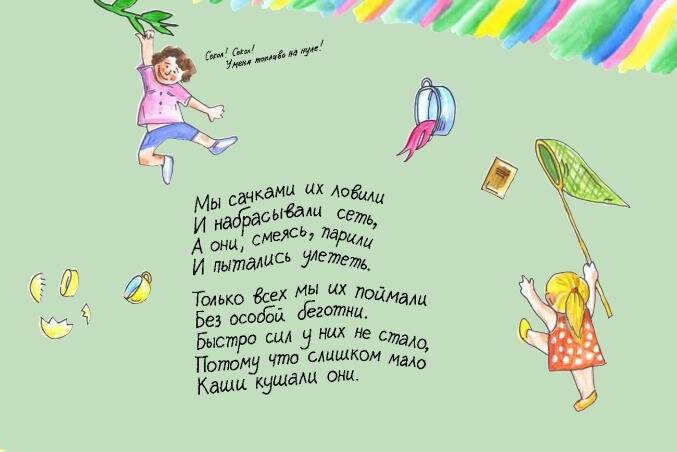 Сокол! Сокол!
У меня топливо на нуле!
Мы сачками их ловили
И набрасывали сеть,
А они, смеясь, парили
И пытались улететь.
Только всех мы их поймали
Без особой беготни.
Быстро сил у них не стало,
Потому что слишком мало
Каши кушали они.